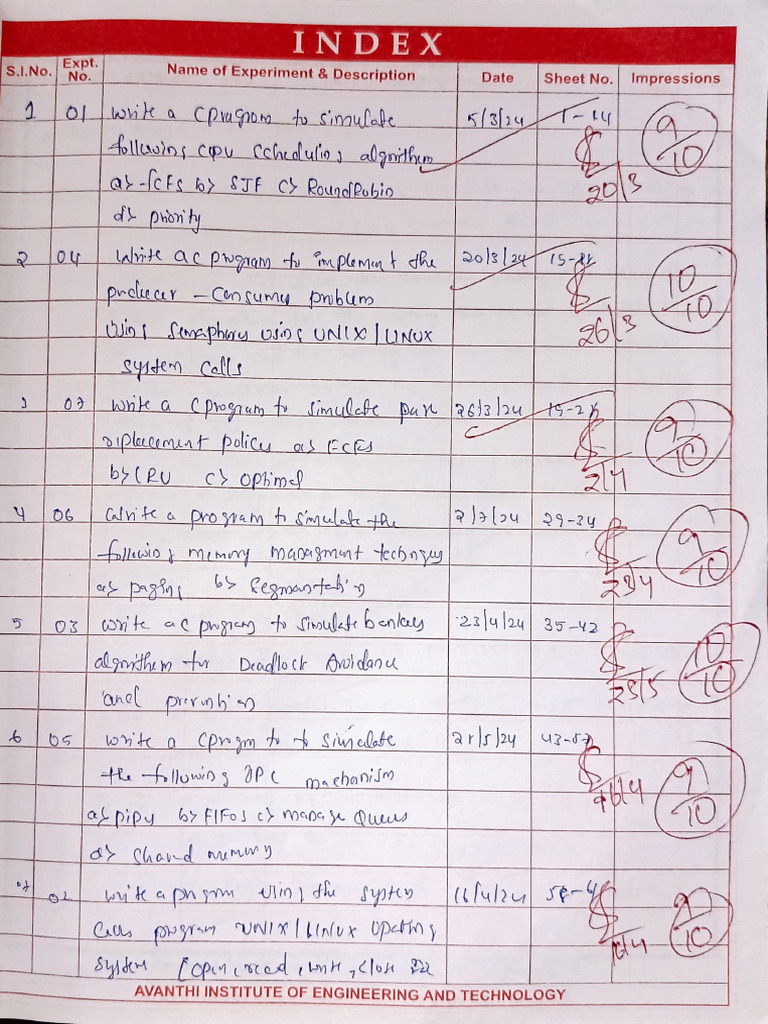 INDEX
S.I.No. Expt. No. Name of Experiment & Description Date Sheet No. Impressions
1 01 Write a C program to simulate 5/3/24 1-14 9/10
following CPU Scheduling algorithm
a> FCFS b> SJF c> Round Robin 20/3
d> priority
2 04 Write a c program to implement the 20/3/24 10/10
producer - Consumer problem
Using Semaphory using UNIX/LINUX 26/3
system calls
3 07 Write a C program to simulate 26/3/24 9/10
replacement policies a> FCFS
b> LRU c> optimal 2/4
4 06 Write a program to simulate the 2/7/24 29-34 9/10
following memory managment techniques
a> paging b> Segmantation 23/4
5 03 Write a c program to simulate bankers 23/4/24 35-42 10/10
algorithm for Deadlock Avoidance
and prevention
6 05 Write a C progm to simulate 21/5/24 9/10
the following IPC mechanism
a> pipy b> FIFOs c> massage Queues
d> shared memory
07 02 Write a program using the system 16/4/24 9/10
calls program UNIX/LINUX operating
system [open, read, write, close
AVANTHI INSTITUTE OF ENGINEERING AND TECHNOLOGY